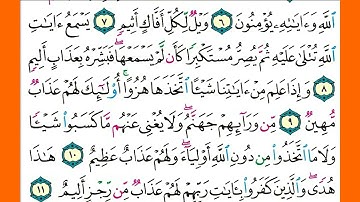 ٱللَّهِ وَءَايَٰتِهِۦ يُؤْمِنُونَ ٦ وَيْلٌ لِّكُلِّ أَفَّاكٍ أَثِيمٍ ٧ يَسْمَعُ ءَايَٰتِ
ٱللَّهِ تُتْلَىٰ عَلَيْهِ ثُمَّ يُصِرُّ مُسْتَكْبِرًا كَأَن لَّمْ يَسْمَعْهَا ۖ فَبَشِّرْهُ بِعَذَابٍ أَلِيمٍ
٨ وَإِذَا عَلِمَ مِنْ ءَايَٰتِنَا شَيْـًٔا ٱتَّخَذَهَا هُزُوًا ۚ أُو۟لَٰٓئِكَ لَهُمْ عَذَابٌ
مُّهِينٌ ٩ مِّن وَرَآئِهِمْ جَهَنَّمُ ۖ وَلَا يُغْنِى عَنْهُم مَّا كَسَبُوا۟ شَيْـًٔا
وَلَا مَا ٱتَّخَذُوا۟ مِن دُونِ ٱللَّهِ أَوْلِيَآءَ ۖ وَلَهُمْ عَذَابٌ عَظِيمٌ ١٠ هَٰذَا
هُدًى ۖ وَٱلَّذِينَ كَفَرُوا۟ بِـَٔايَٰتِ رَبِّهِمْ لَهُمْ عَذَابٌ مِّن رِّجْزٍ أَلِيمٌ ١١